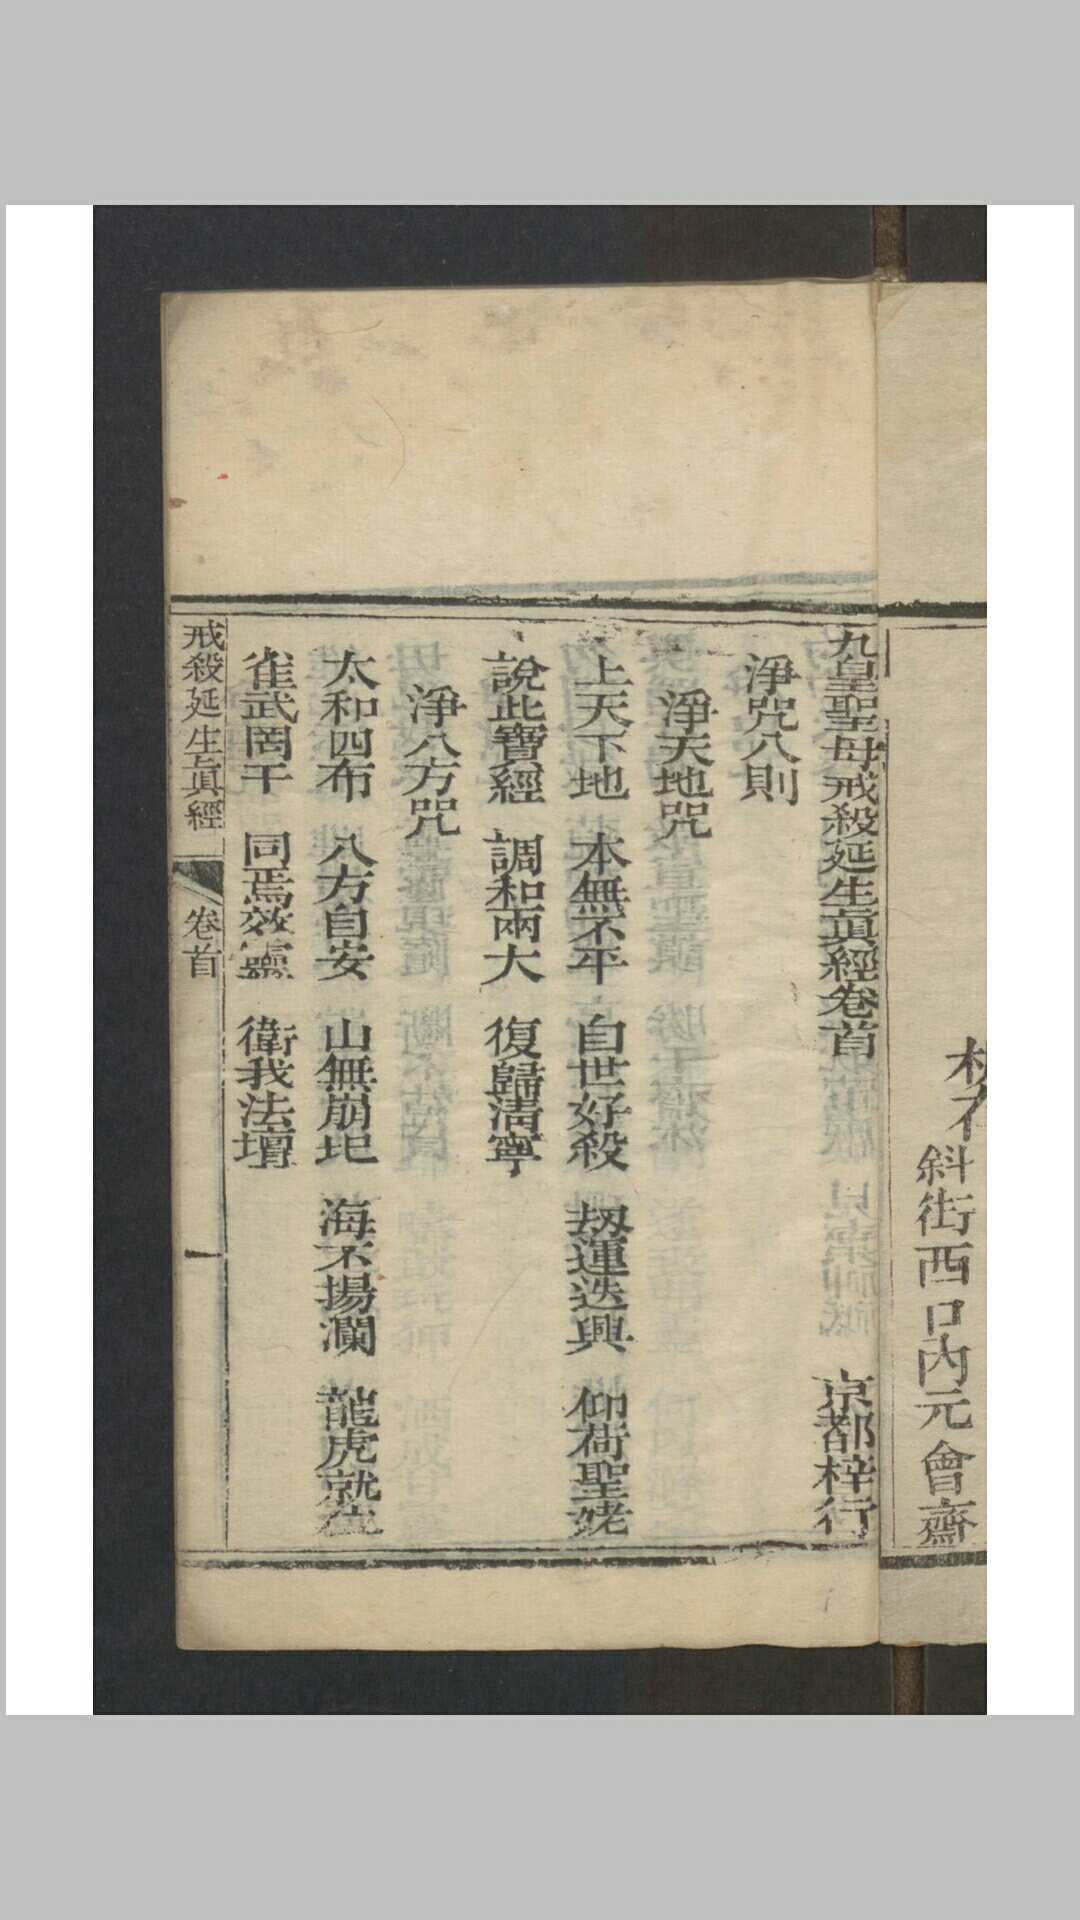 斜街西口內元會齋
九皇聖母戒殺延生眞經卷首 京都梓行
淨咒八則
淨天地咒
上天下地 本無不平 自世好殺 刼運迭興 仰荷聖姥
說此寶經 調和兩大 復歸清寧
淨八方咒
太和四布 八方自安 山無崩圮 海不揚瀾 龍虎就位
雀武罔干 同焉效靈 衛我法壇
戒殺延生眞經 卷首 一